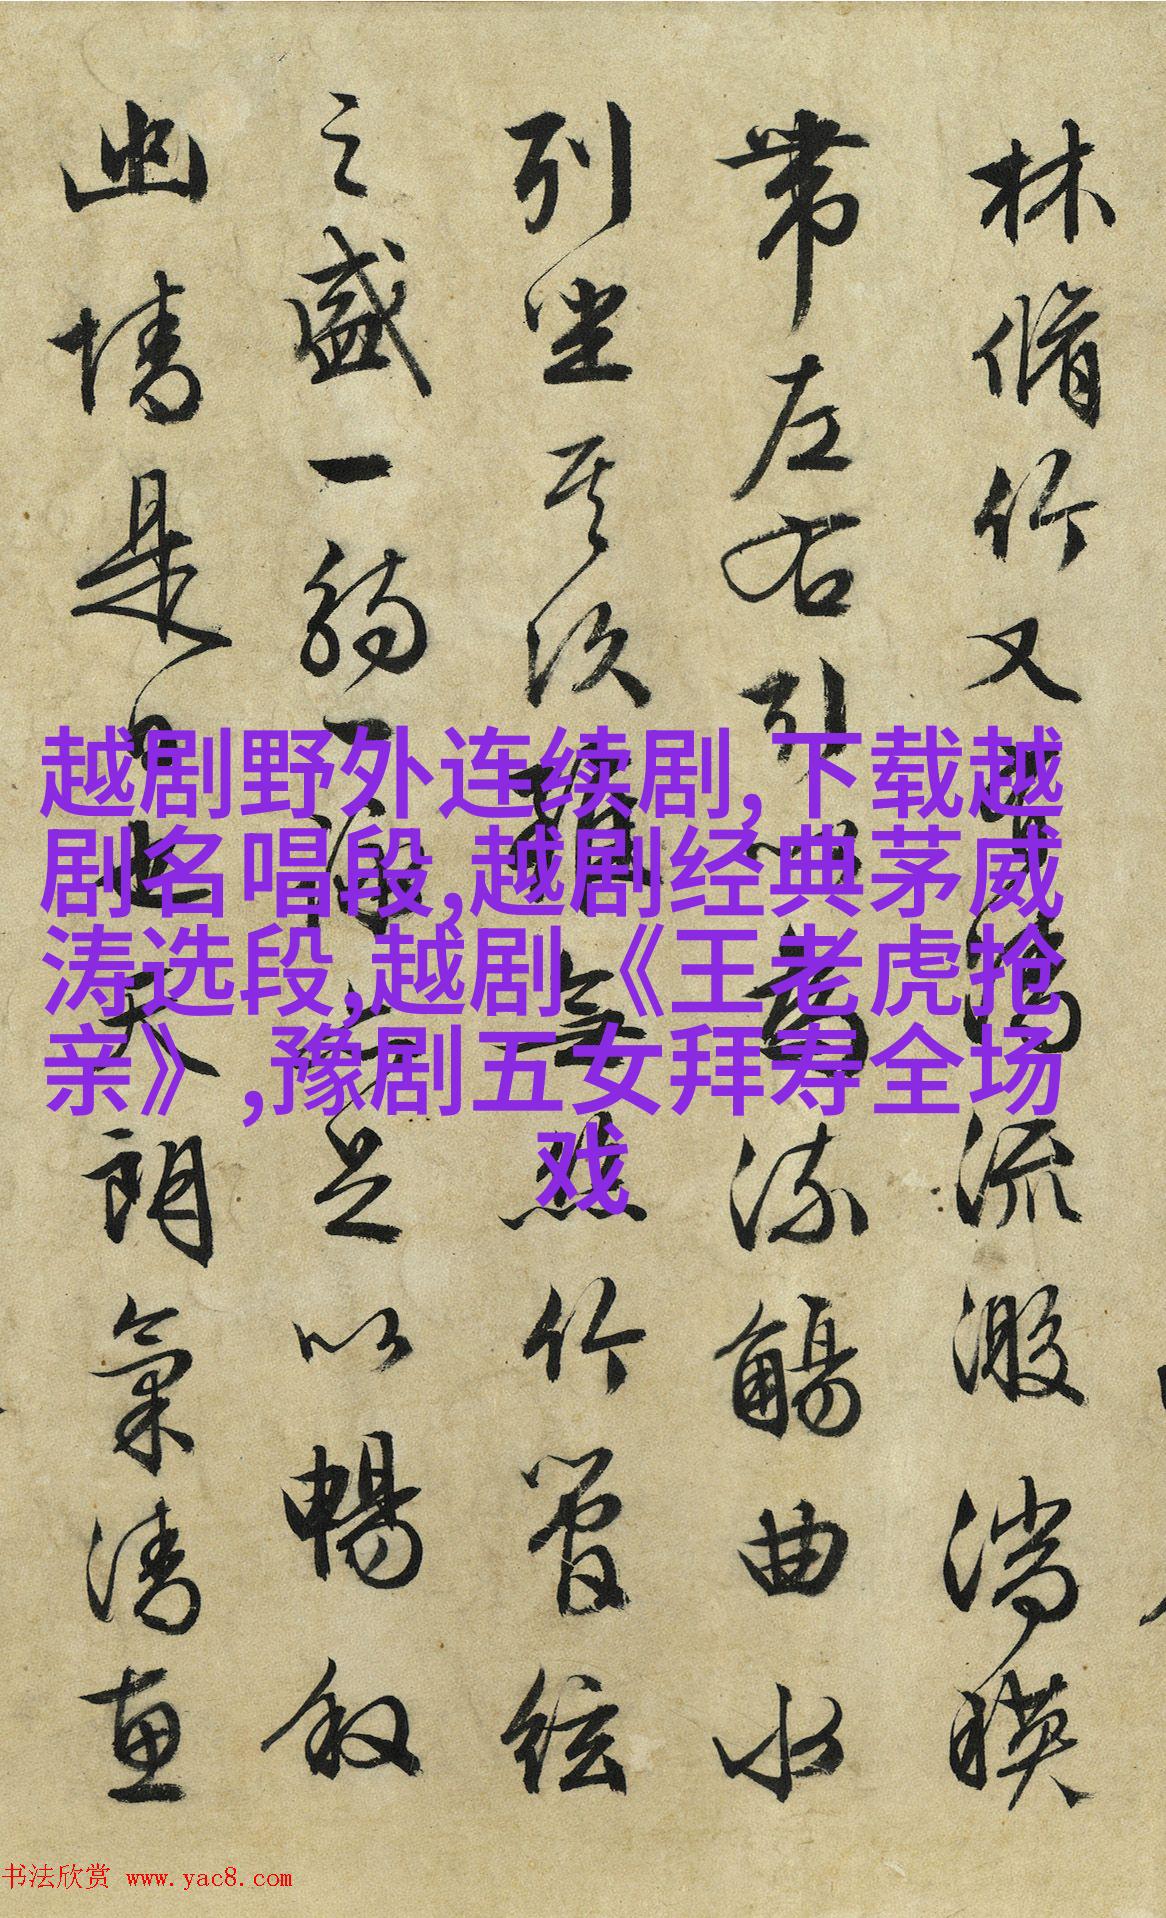 林脩竹又有清流激湍暎
帶左右引以為流觴曲水
列坐其次雖無絲竹管絃
之盛一觴一詠亦足以暢叙
幽情是日也天朗氣清惠
越剧野外连续剧,下载越
剧名唱段,越剧经典茅威
涛选段,越剧《王老虎抢
亲》,豫剧五女拜寿全场
戏
书法欣赏 www.yac8.com